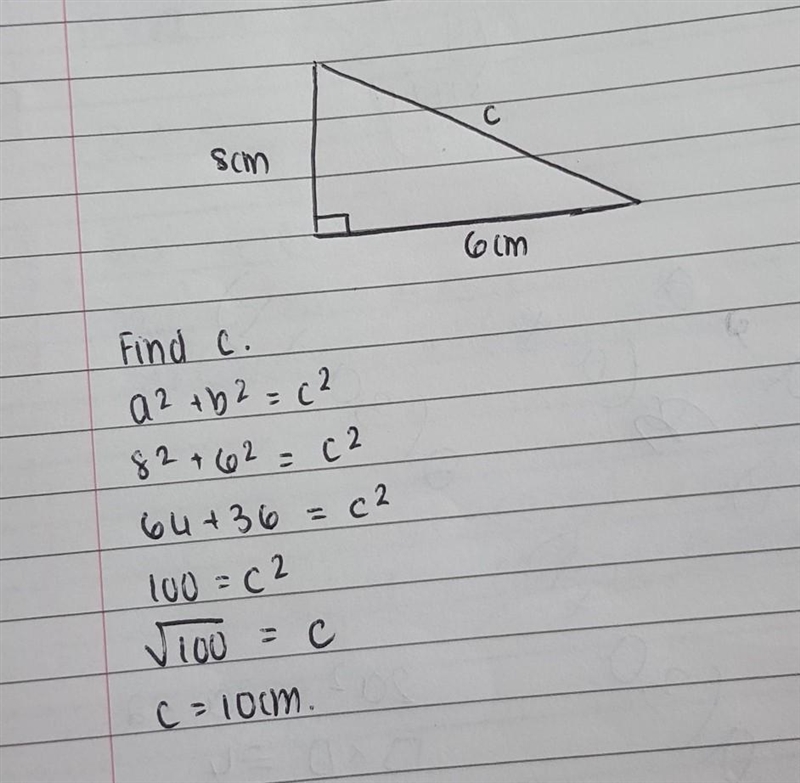 c
8cm
6cm
Find c.
a² + b² = c²
8² + 6² = c²
64 + 36 = c²
100 = c²
√100 = c
c = 10cm.